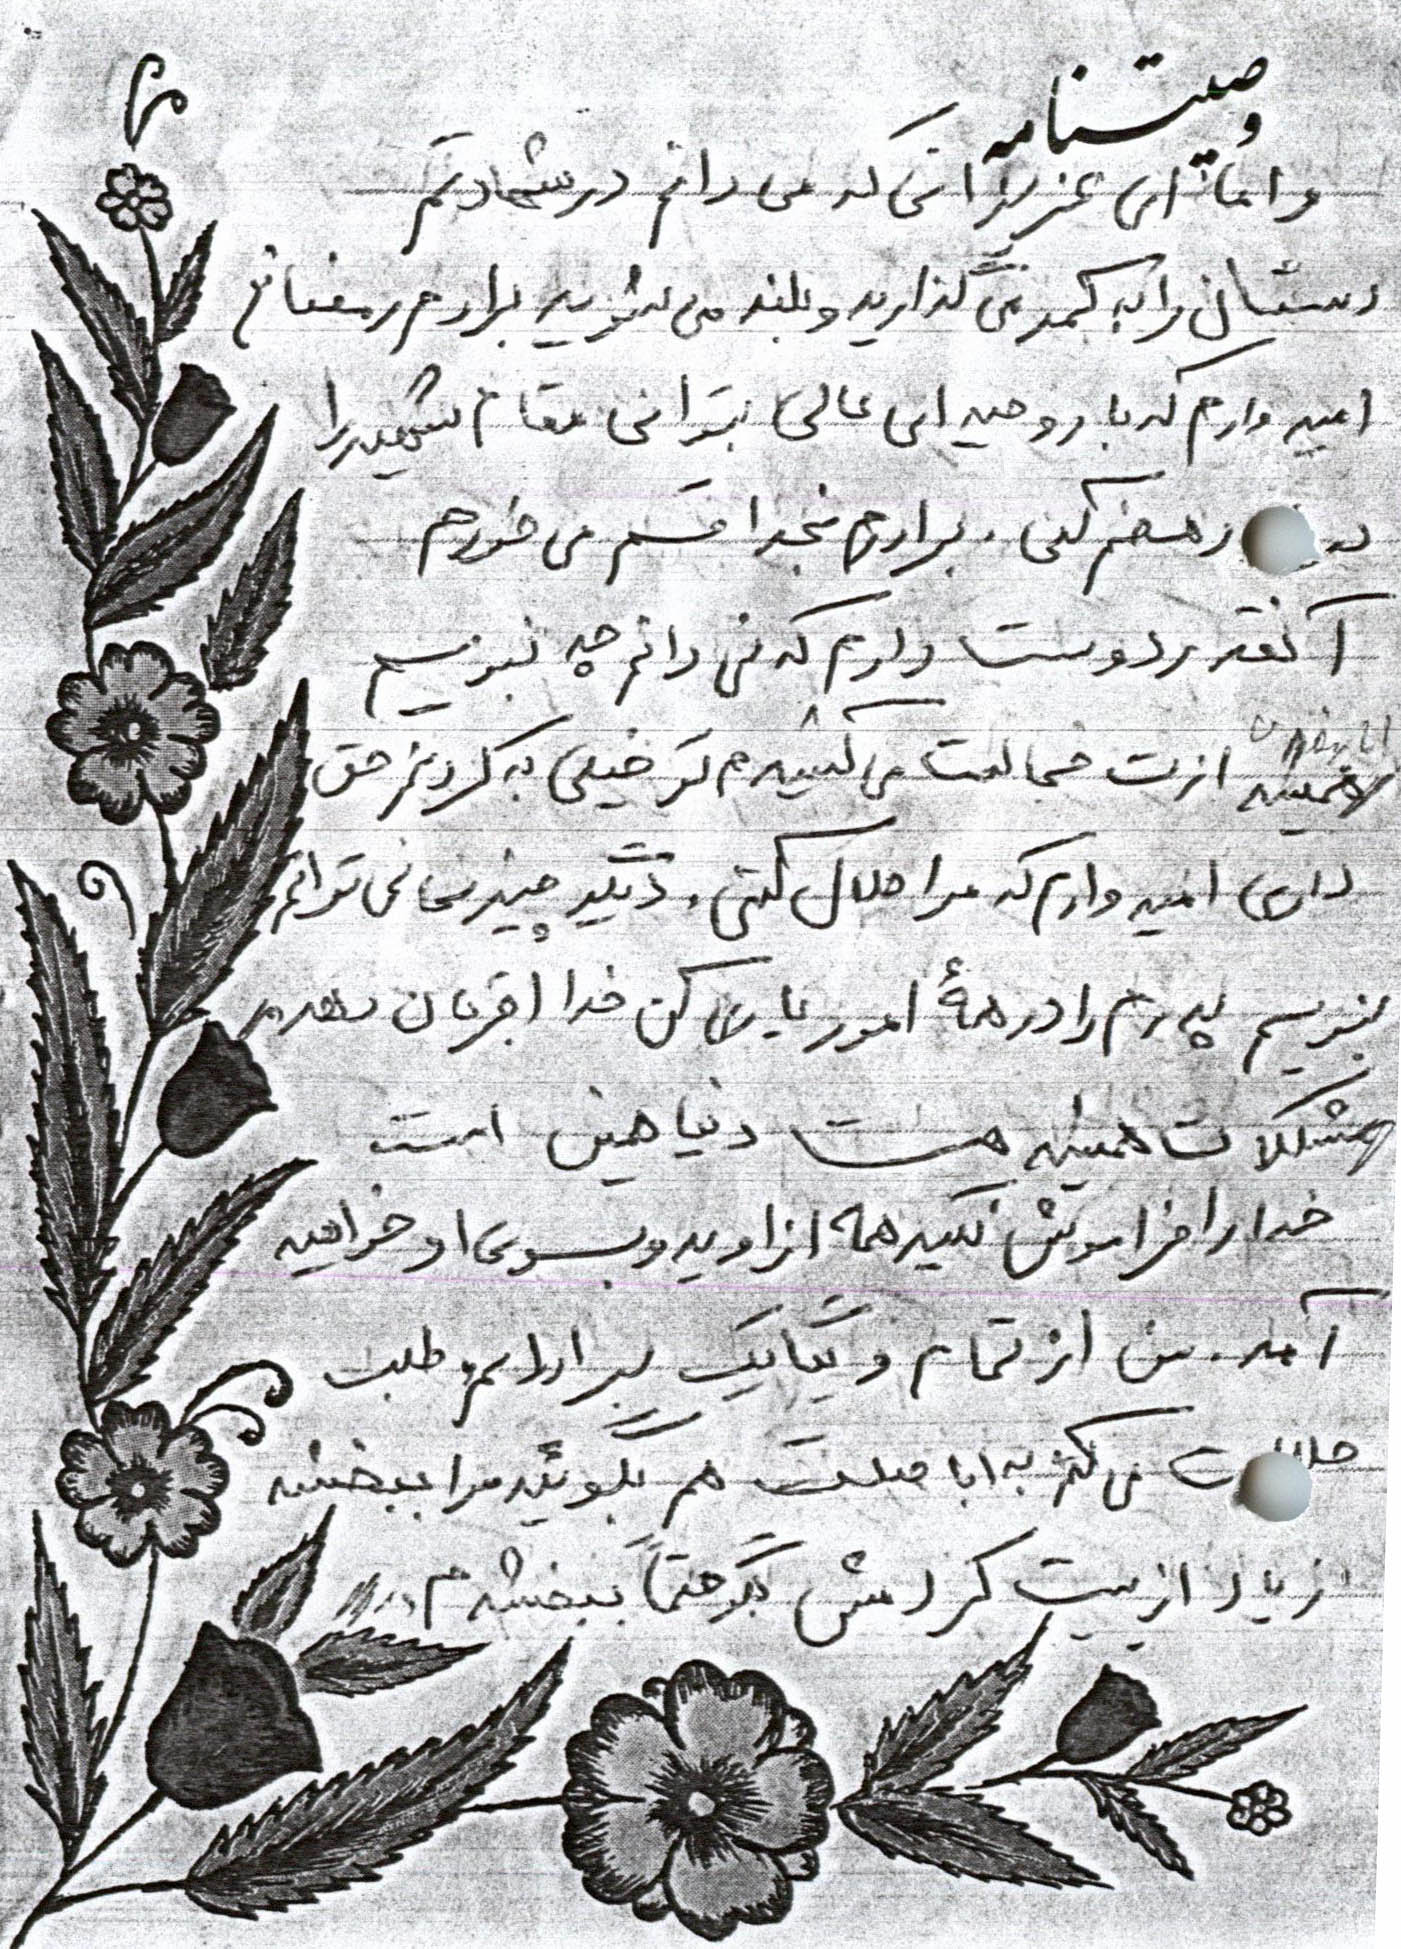 وصیتنامه
و اما ای عزیزانی که می دانم در شهادتم
دستتان را به کمر می گذارید و بلند می شوید برادرم رمضان
امید وارم که با روحیه ای عالی بتوانی مقام شهید را
در هضم کنی . برادرم بخدا قسم می خورم
آنقدر دوست دارم که نمی دانم چه بنویسم
همیشه ازت خجالت می کشیدم تو خیلی به گردنم حق
داری امید وارم که مرا حلال کنی . دیگر چیزی نمی توانم
بنویسم پدرم را در همهٔ امور یاری کن خدا اجرتان دهد
مشکلات همیشه هست دنیا همین است
خدا را فراموش نکنید همه از اوید و بسوی او خواهید
آمد . من از تمام و یکایک برادرانم طلب
حلالیت می کنم به اباصلت هم بگوئید مرا ببخشد
زیاد اذیت کردمش بگو حتماً ببخشدم